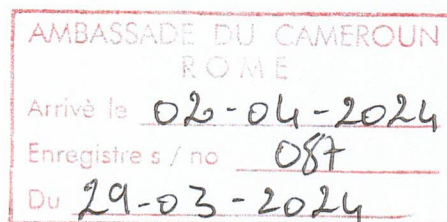 AMBASSADE DU CAMEROUN
ROME
Arrivè le 02-04-2024
Enregistre s / no 087
Du 29-03-2024